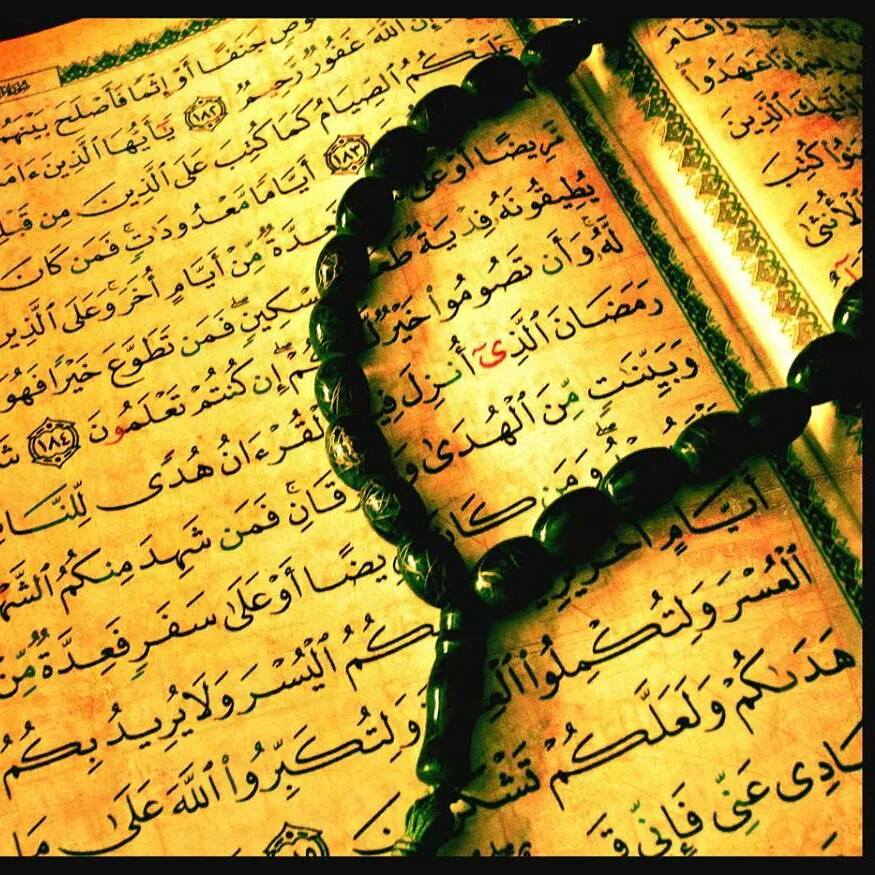 وَأَقَامَ
عَٰهَدُوا۟
أُو۟لَٰٓئِكَ ٱلَّذِينَ
كُتِبَ
ٱلْأُنثَىٰ
جَنَفًا أَوْ إِثْمًا فَأَصْلَحَ بَيْنَهُمْ
إِنَّ ٱللَّهَ غَفُورٌ رَّحِيمٌ ١٨٢ يَٰٓأَيُّهَا ٱلَّذِينَ ءَامَ
عَلَيْكُمُ ٱلصِّيَامُ كَمَا كُتِبَ عَلَى ٱلَّذِينَ مِن قَبْلِ
١٨٣ أَيَّامًا مَّعْدُودَٰتٍ فَمَن كَانَ
مَّرِيضًا أَوْ عَلَىٰ فَعِدَّةٌ مِّنْ أَيَّامٍ أُخَرَ وَعَلَى ٱلَّذِينَ
يُطِيقُونَهُۥ فِدْيَةٌ طَعَامُ مِسْكِينٍ فَمَن تَطَوَّعَ خَيْرًا فَهُوَ
لَّهُۥ وَأَن تَصُومُوا۟ خَيْرٌ لَّكُمْ إِن كُنتُمْ تَعْلَمُونَ ١٨٤
رَمَضَانَ ٱلَّذِىٓ أُنزِلَ فِيهِ ٱلْقُرْءَانُ هُدًى لِّلنَّاسِ
وَبَيِّنَٰتٍ مِّنَ ٱلْهُدَىٰ وَٱلْفُرْقَانِ فَمَن شَهِدَ مِنكُمُ ٱلشَّهْ
وَمَن كَانَ مَرِيضًا أَوْ عَلَىٰ سَفَرٍ فَعِدَّةٌ مِّنْ
أَيَّامٍ أُخَرَ بِكُمُ ٱلْيُسْرَ وَلَا يُرِيدُ بِكُمُ
ٱلْعُسْرَ وَلِتُكْمِلُوا۟ ٱلْعِ وَلِتُكَبِّرُوا۟ ٱللَّهَ عَلَىٰ مَا
هَدَىٰكُمْ وَلَعَلَّكُمْ تَشْكُرُونَ
عِبَادِى عَنِّى فَإِنِّى